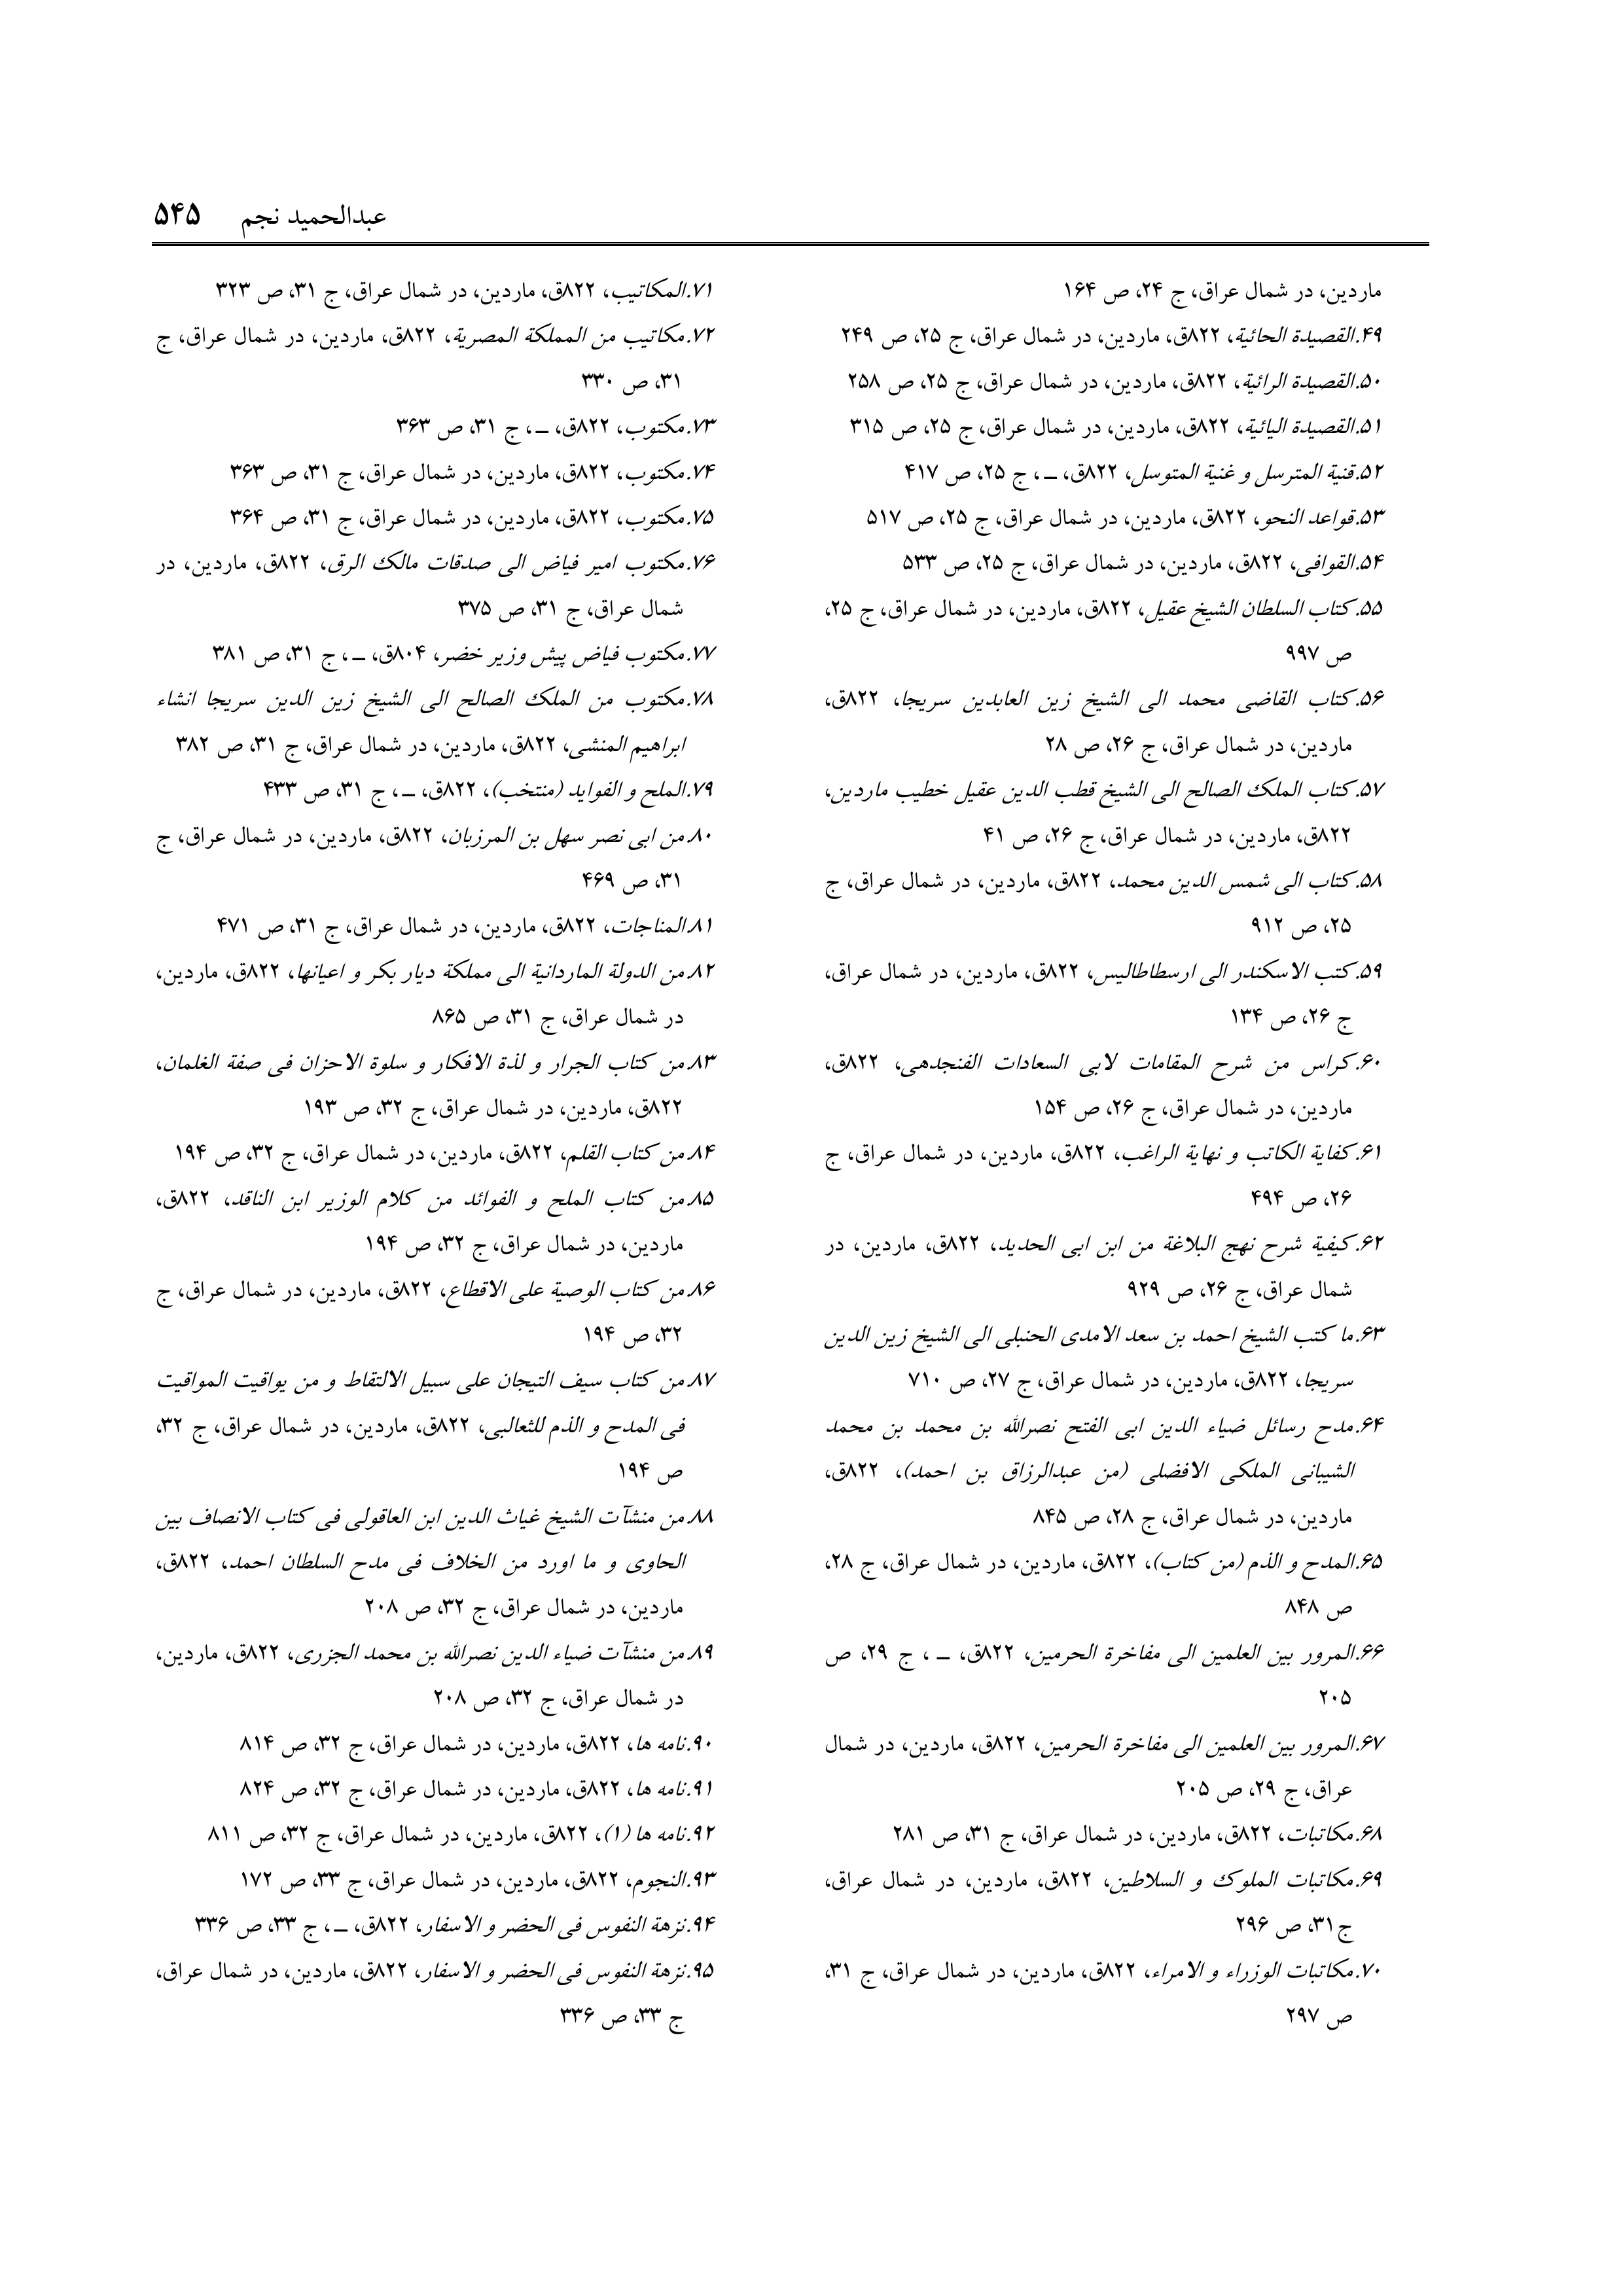 عبدالحمید نجم ۵۴۵
ماردین، در شمال عراق، ج ۲۴، ص ۱۶۴
۴۹.القصیدة الحائیة، ۸۲۲ق، ماردین، در شمال عراق، ج ۲۵، ص ۲۴۹
۵۰.القصیدة الرائیة، ۸۲۲ق، ماردین، در شمال عراق، ج ۲۵، ص ۲۵۸
۵۱.القصیدة الیائیة، ۸۲۲ق، ماردین، در شمال عراق، ج ۲۵، ص ۳۱۵
۵۲.قنیة المترسل و غنیة المتوسل، ۸۲۲ق، ـ ، ج ۲۵، ص ۴۱۷
۵۳.قواعد النحو، ۸۲۲ق، ماردین، در شمال عراق، ج ۲۵، ص ۵۱۷
۵۴.القوافی، ۸۲۲ق، ماردین، در شمال عراق، ج ۲۵، ص ۵۳۳
۵۵.کتاب السلطان الشیخ عقیل، ۸۲۲ق، ماردین، در شمال عراق، ج ۲۵،
ص ۹۹۷
۵۶.کتاب القاضی محمد الی الشیخ زین العابدین سریجا، ۸۲۲ق،
ماردین، در شمال عراق، ج ۲۶، ص ۲۸
۵۷.کتاب الملک الصالح الی الشیخ قطب الدین عقیل خطیب ماردین،
۸۲۲ق، ماردین، در شمال عراق، ج ۲۶، ص ۴۱
۵۸.کتاب الی شمس الدین محمد، ۸۲۲ق، ماردین، در شمال عراق، ج
۲۵، ص ۹۱۲
۵۹.کتب الاسکندر الی ارسطاطالیس، ۸۲۲ق، ماردین، در شمال عراق،
ج ۲۶، ص ۱۳۴
۶۰.کراس من شرح المقامات لابی السعادات الفنجدهی، ۸۲۲ق،
ماردین، در شمال عراق، ج ۲۶، ص ۱۵۴
۶۱.کفایة الکاتب و نهایة الراغب، ۸۲۲ق، ماردین، در شمال عراق، ج
۲۶، ص ۴۹۴
۶۲.کیفیة شرح نهج البلاغة من ابن ابی الحدید، ۸۲۲ق، ماردین، در
شمال عراق، ج ۲۶، ص ۹۲۹
۶۳.ما کتب الشیخ احمد بن سعد الامدی الحنبلی الی الشیخ زین الدین
سریجا، ۸۲۲ق، ماردین، در شمال عراق، ج ۲۷، ص ۷۱۰
۶۴.مدح رسائل ضیاء الدین ابی الفتح نصرالله بن محمد بن محمد
الشیبانی الملکی الافضلی (من عبدالرزاق بن احمد)، ۸۲۲ق،
ماردین، در شمال عراق، ج ۲۸، ص ۸۴۵
۶۵.المدح و الذم (من کتاب)، ۸۲۲ق، ماردین، در شمال عراق، ج ۲۸،
ص ۸۴۸
۶۶.المرور بین العلمین الی مفاخرة الحرمین، ۸۲۲ق، ـ ، ج ۲۹، ص
۲۰۵
۶۷.المرور بین العلمین الی مفاخرة الحرمین، ۸۲۲ق، ماردین، در شمال
عراق، ج ۲۹، ص ۲۰۵
۶۸.مکاتبات، ۸۲۲ق، ماردین، در شمال عراق، ج ۳۱، ص ۲۸۱
۶۹.مکاتبات الملوک و السلاطین، ۸۲۲ق، ماردین، در شمال عراق،
ج ۳۱، ص ۲۹۶
۷۰.مکاتبات الوزراء و الامراء، ۸۲۲ق، ماردین، در شمال عراق، ج ۳۱،
ص ۲۹۷
۷۱.المکاتیب، ۸۲۲ق، ماردین، در شمال عراق، ج ۳۱، ص ۳۲۳
۷۲.مکاتیب من المملکة المصریة، ۸۲۲ق، ماردین، در شمال عراق، ج
۳۱، ص ۳۳۰
۷۳.مکتوب، ۸۲۲ق، ـ ، ج ۳۱، ص ۳۶۳
۷۴.مکتوب، ۸۲۲ق، ماردین، در شمال عراق، ج ۳۱، ص ۳۶۳
۷۵.مکتوب، ۸۲۲ق، ماردین، در شمال عراق، ج ۳۱، ص ۳۶۴
۷۶.مکتوب امیر فیاض الی صدقات مالک الرق، ۸۲۲ق، ماردین، در
شمال عراق، ج ۳۱، ص ۳۷۵
۷۷.مکتوب فیاض پیش وزیر خضر، ۸۰۴ق، ـ ، ج ۳۱، ص ۳۸۱
۷۸.مکتوب من الملک الصالح الی الشیخ زین الدین سریجا انشاء
ابراهیم المنشی، ۸۲۲ق، ماردین، در شمال عراق، ج ۳۱، ص ۳۸۲
۷۹.الملح و الفواید (منتخب)، ۸۲۲ق، ـ ، ج ۳۱، ص ۴۳۳
۸۰.من ابی نصر سهل بن المرزبان، ۸۲۲ق، ماردین، در شمال عراق، ج
۳۱، ص ۴۶۹
۸۱.المناجات، ۸۲۲ق، ماردین، در شمال عراق، ج ۳۱، ص ۴۷۱
۸۲.من الدولة الماردانیة الی مملکة دیار بکر و اعیانها، ۸۲۲ق، ماردین،
در شمال عراق، ج ۳۱، ص ۸۶۵
۸۳.من کتاب الجرار و لذة الافکار و سلوة الاحزان فی صفة الغلمان،
۸۲۲ق، ماردین، در شمال عراق، ج ۳۲، ص ۱۹۳
۸۴.من کتاب القلم، ۸۲۲ق، ماردین، در شمال عراق، ج ۳۲، ص ۱۹۴
۸۵.من کتاب الملح و الفوائد من کلام الوزیر ابن الناقد، ۸۲۲ق،
ماردین، در شمال عراق، ج ۳۲، ص ۱۹۴
۸۶.من کتاب الوصیة علی الاقطاع، ۸۲۲ق، ماردین، در شمال عراق، ج
۳۲، ص ۱۹۴
۸۷.من کتاب سیف التیجان علی سبیل الالتقاط و من یواقیت المواقیت
فی المدح و الذم للثعالبی، ۸۲۲ق، ماردین، در شمال عراق، ج ۳۲،
ص ۱۹۴
۸۸.من منشآت الشیخ غیاث الدین ابن العاقولی فی کتاب الانصاف بین
الحاوی و ما اورد من الخلاف فی مدح السلطان احمد، ۸۲۲ق،
ماردین، در شمال عراق، ج ۳۲، ص ۲۰۸
۸۹.من منشآت ضیاء الدین نصرالله بن محمد الجزری، ۸۲۲ق، ماردین،
در شمال عراق، ج ۳۲، ص ۲۰۸
۹۰.نامه ها، ۸۲۲ق، ماردین، در شمال عراق، ج ۳۲، ص ۸۱۴
۹۱.نامه ها، ۸۲۲ق، ماردین، در شمال عراق، ج ۳۲، ص ۸۲۴
۹۲.نامه ها (۱)، ۸۲۲ق، ماردین، در شمال عراق، ج ۳۲، ص ۸۱۱
۹۳.النجوم، ۸۲۲ق، ماردین، در شمال عراق، ج ۳۳، ص ۱۷۲
۹۴.نزهة النفوس فی الحضر و الاسفار، ۸۲۲ق، ـ ، ج ۳۳، ص ۳۳۶
۹۵.نزهة النفوس فی الحضر و الاسفار، ۸۲۲ق، ماردین، در شمال عراق،
ج ۳۳، ص ۳۳۶